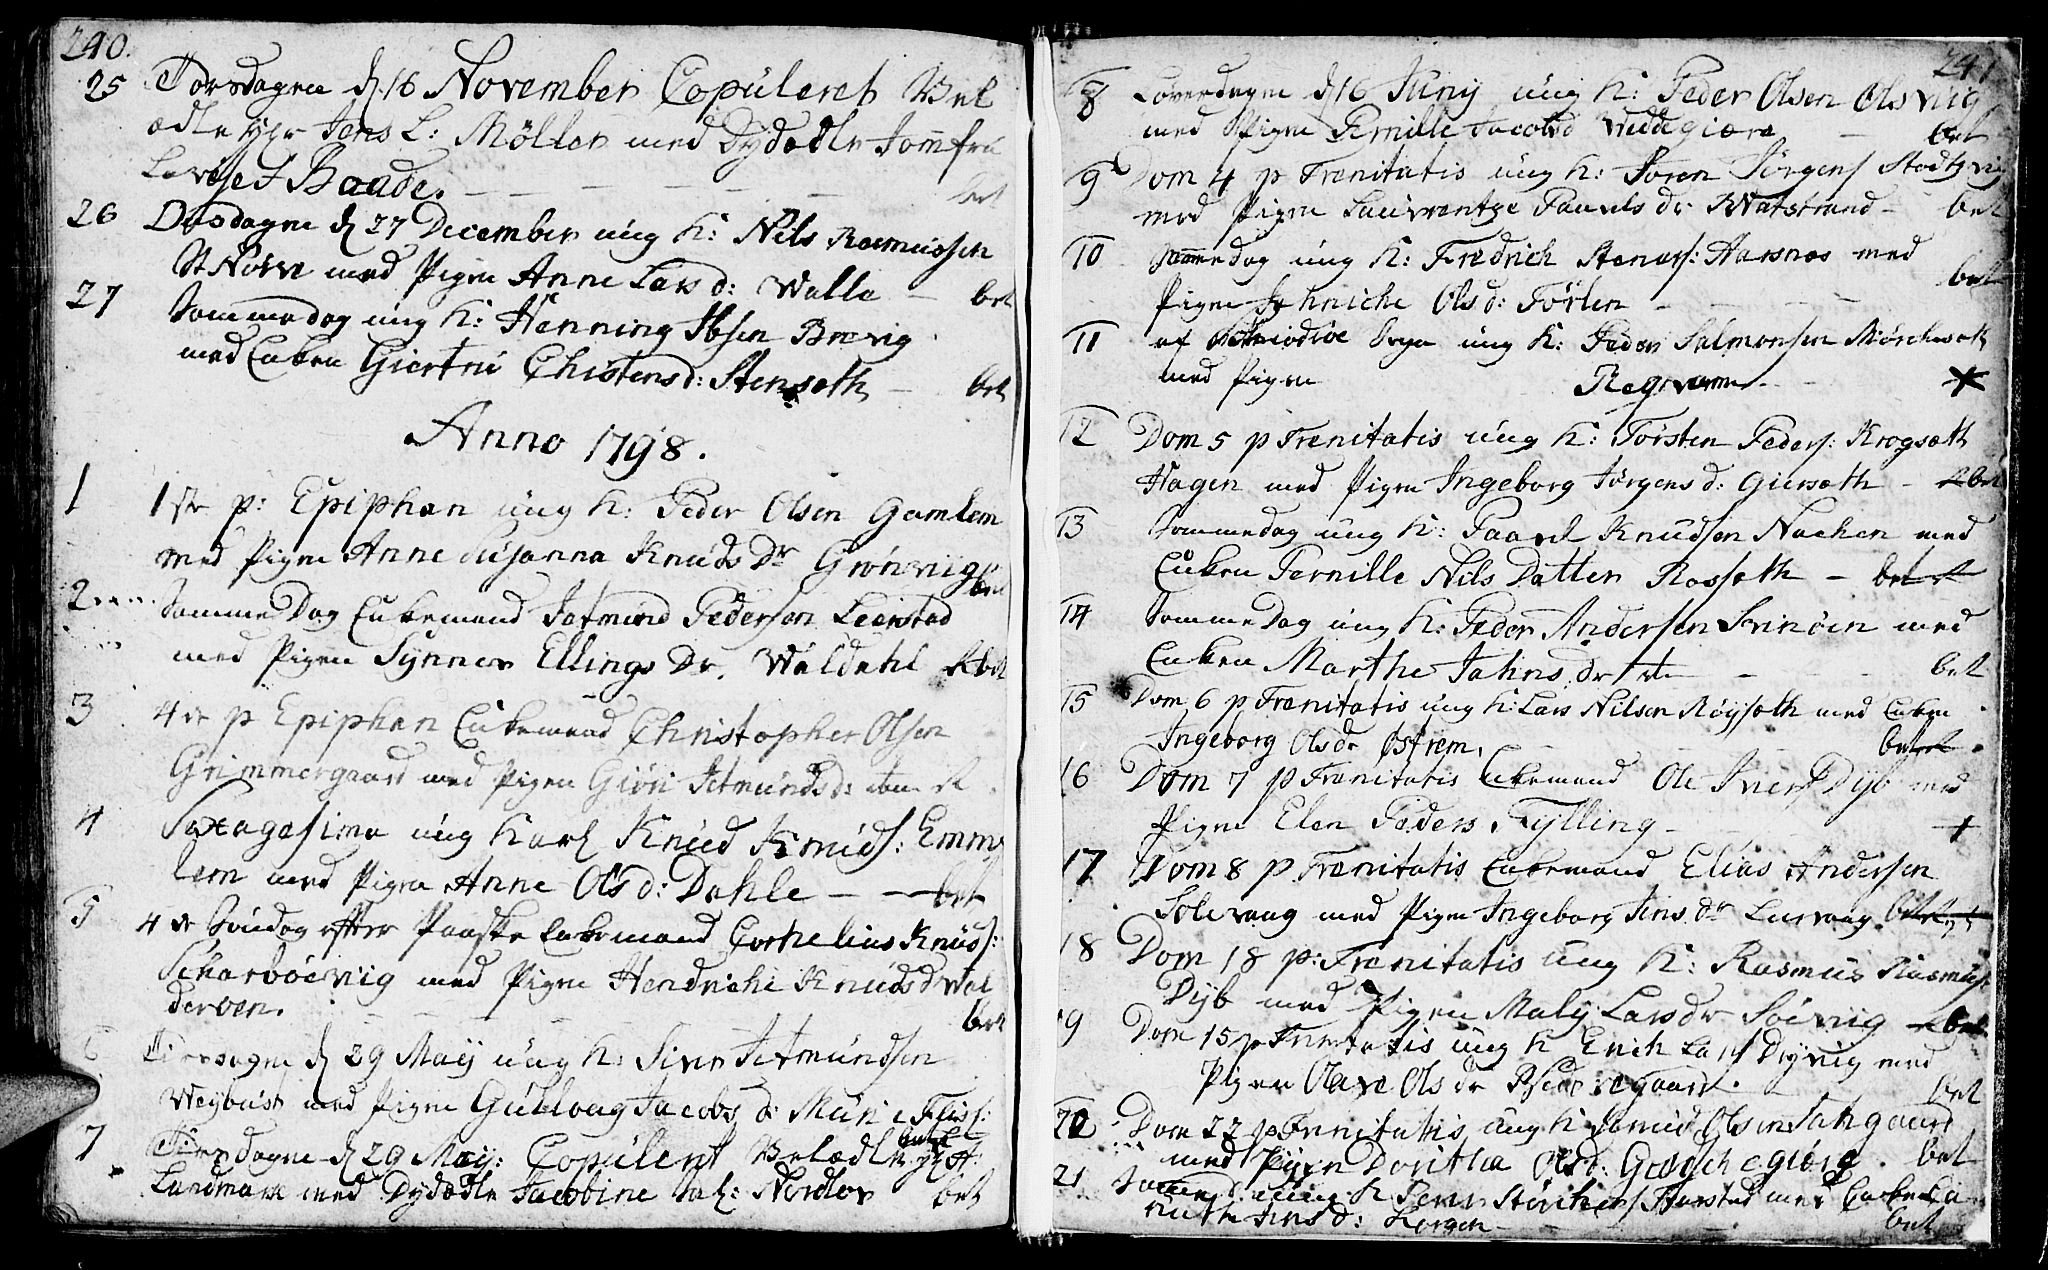 240.
25 Torsdagen d 16 November Copuleret Vel
ædle Hr Jens L: Möller med Dydædle Jomfru
Baade. bet
26 Onsdagen d 27 December ung K: Nils Rasmussen
med Pigen Anne Lars d: Walle – bet
27 Sammedag ung K: Henning Ibsen Brevig
med Enken Giertru Christensd: Stensæth – bet
Anno 1798.
1 1ste p: Epiphan ung K: Peder Olsen Gamlem
med Pigen Anne Susanna Knuds Dr Grönvig bet
2 Samme Dag Enkemand Jetmund Pedersen Leenstad
med Pigen Synnev Ellings Dr. Waldahl bet
3 4de p Epiphan Enkemand Christopher Olsen
Grimmergaard med Pigen Giöri Jetmundsd:
4 Sexagesima ung Karl Knud Knuds: Emm
lem med Pigen Anne Ols d: Dahle – bet
5 4de Söndag efter Paaske Enkemand Cornelius Knuds:
Skarböevig med Pigen Hendriche Knudsd Wal
deröen. bet
Tiersdagen d 29 Maij ung K: Siver Jetmundsen
Weybust med Pigen Gulloug Jacobs d: Muri
7 Tiersdagen d 29 Maij: Copulert Velædle
Landmark med Dydædle Jacobine Nordlov bet
241
8 Löverdagen d 16 Junij ung K: Peder Olsen Olsvig
med Pigen Pernille Jacobsd bet
9 Dom 4 p Trenitatis ung K: Soren Jörgens
med Pigen Laurentze Pauels dr Watstrand – bet
10 Sammedag ung K: Fredrich Stenars: Aarsnæs med
Pigen Jahniche Ols d: Törlen – bet
11 ung K: Peder Salmonsen
med Pigen
12 Dom 5 p Trenitatis ung K: Torsten Peders: Krogsæth
Hagen med Pigen Ingeborg Jörgens d: Giersæth – bet
13 Sammedag ung K: Paavel Knudsen Nachen med
Enken Pernille Nils Datter Rossæth – bet
14 Samme Dag ung K: Peder Andersen Svinöen med
Enken Marthe Jahns dr bet
15 Dom 6 p Trenitatis ung K: Lars Nilsen Röysæth med Enken
Ingeborg Olsdr Østrem. bet
16 Dom 7 p Trenitatis Enkemand Ole Ivers Dyb med
Pigen Elen Peders Fylling –
17 Dom 8 p Trenitatis Enkemand Elias Andersen
Solevaag med Pigen Ingeborg Jens dr bet
18 Dom 18 p: Trenitatis ung K: Rasmus Rasmus:
Dyb med Pigen Maly Larsdr Söevig bet
19 Dom 15 p Trenitatis ung K Erich Lars Dryvig med
Pigen Olave Ols dr bet
20 Dom 22 p Trenitatis ung K Olsen
med Pigen Doritha Olsd: bet
21 Samme d: ung K Harstad med Enken
Jens d: bet